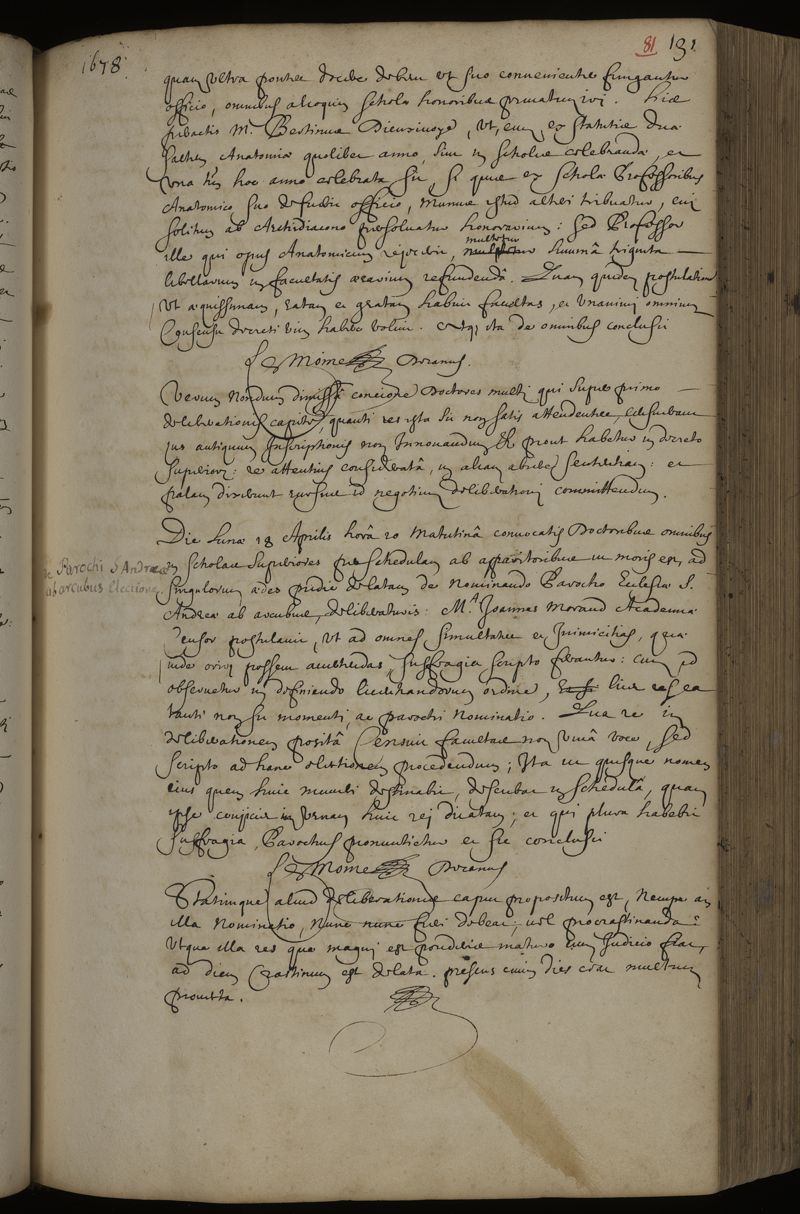 1678.
81 131
quam ultra pontha decebe debere ut suo convenienter fungantur
officio, omnibus alioquin scholæ honoribus privatum iri. hic
subactis M. Bertinus Dieuxivoye, ut, cum, ex statutis duæ
saltem Anatomiæ quolibet anno, sint in scholis celebrandæ, et
una tm hoc anno celebrata sit, si quis ex scholæ Professoribus
Anatomico suo defuerit officio, munus istud alteri tribuatur, cui
solitum ab Archidiacono persolvatur honorarium: sed Professor
ille qui opus Anatomicum rejecerit, multetur summâ triginta
librarum in facultatis ærarium refundendâ. Quam quidem postulationem
ut æquissimam, ratam et gratam habuit facultas, et unanimi omnium
Consensu decreti vim habere voluit. atqz ita de omnibus conclusit
Le Moine Decanus.
Verum nondum dimissâ concione Doctores multi qui super primo
deliberationis capite, quanti res ista sit non satis attendentes, censuerant
jus antiquum Inscriptionis non Innovandum prout habetur in decreto
superiori: re attentius consideratâ, in aliam abiere sententiam: et
palam dixerunt rursus id negotium deliberationi committendum.
Die Lunæ 18 Aprilis horâ 10 matutinâ convocatis Doctoribus omnibus
in scholas superiores per schedulam ab apparitoribus ut moris est, ad
singulorum ædes pridie delatam de nominando Parocho Ecclesiæ S.
Andreæ ab arcubus, deliberaturis: M.r Joannes Morand Academiæ
Censor postulavit, ut ad omnes simultates et Inimicitias, quæ
inde oriri possent avertendas, suffragia scripto ferantur: cum id
observetur in definiendo licentiandorum ordine, licet res ea
tanti non sit momenti, ac parochi nominatio. Qua re in
deliberationem positâ Censuit facultas non vivâ voce, sed
scripto ad hanc electionem procedendum; Ita ut quisque nomen
eius quem huic muneri destinabit, describat in schedulâ, quam
ipse conjiciet in urnam huic rei dicatam; et qui plura habebit
suffragia, Parochus pronuntietur et sic conclusit
Le Moine Decanus
Statimque aliud deliberationis caput propositum est, Nempe an
illa Nominatio, nunc fieri debeat, vel procrastinanda?
Utqua illa res quæ magni est ponderis maturo cum Judicio fiat,
ad diem Crastinum est delata. præsens enim dies erat multum
provecta.
de Parochi S Andreæ
ab arcubus Electione.